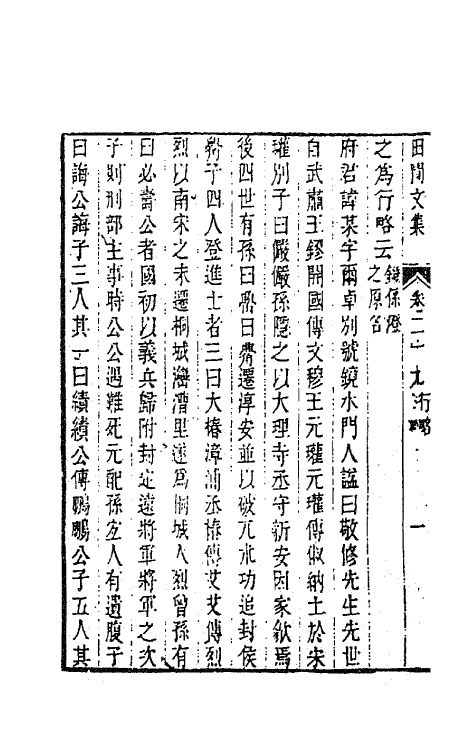 田間文集
卷二十九行略
一
之爲行略云
錢係澄
之原名
府君諱某字爾卓別號鏡水門人諡曰敬修先生先世
自武肅王鏐開國傳文穆王元瓘元瓘傳俶納土於宋
瓘別子曰儼儼孫隱之以大理寺丞守新安因家歙焉
後四世有孫曰
遷淳安並以破
功追封侯
子四人登進士者三曰大椿漳浦丞椿傳艾艾傳烈
烈以南宋之末遷桐城海漕里遂爲桐城人烈曾孫有
曰必壽公者國初以義兵歸附封定遠將軍將軍之次
子則刑部主事時公公遇難死元配孫宜人有遺腹子
曰誨公誨子三人其一曰績績公傳鵬鵬公子五人其